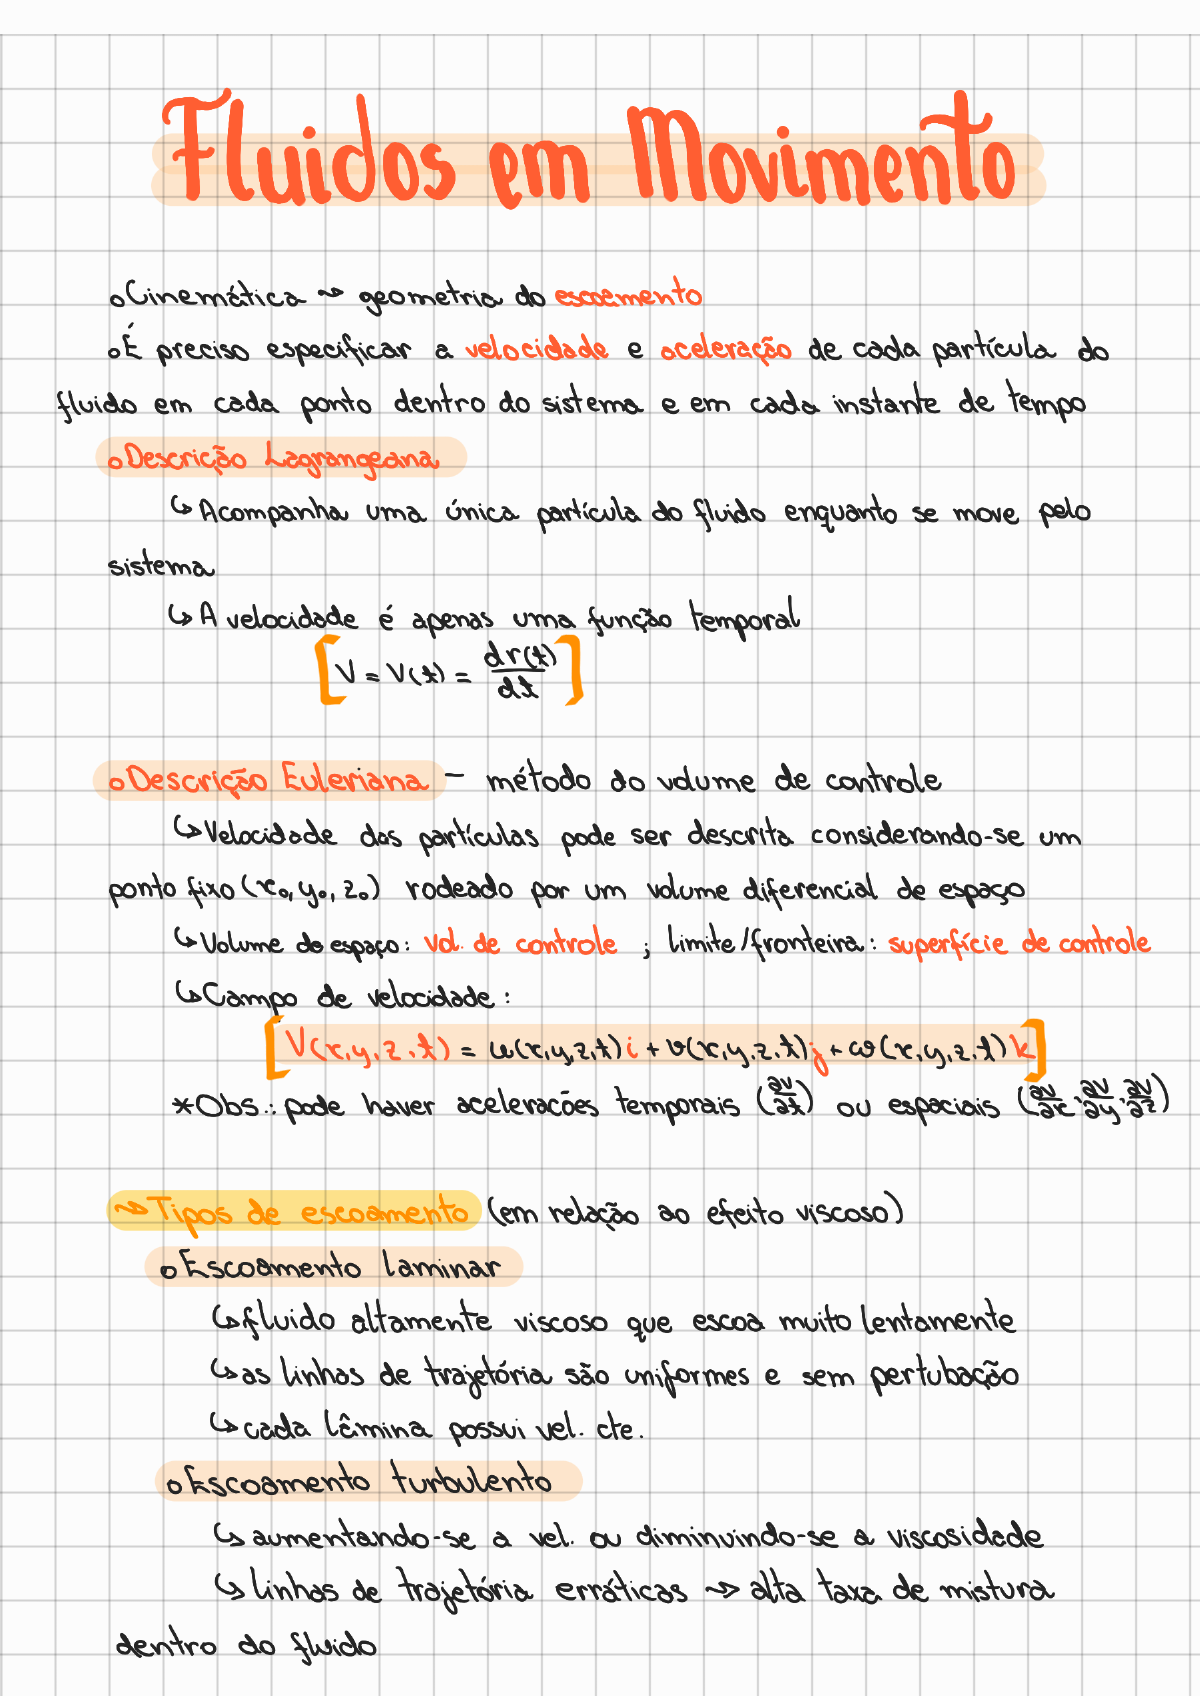 Fluidos em Movimento
oCinemática ~> geometria do escoamento
oÉ preciso especificar a velocidade e aceleração de cada partícula do
fluido em cada ponto dentro do sistema e em cada instante de tempo
oDescrição Lagrangeana
↳Acompanha uma única partícula do fluido enquanto se move pelo
sistema
↳A velocidade é apenas uma função temporal
[V = V(t) = dr(t)/dt]
oDescrição Euleriana - método do volume de controle
↳Velocidade das partículas pode ser descrita considerando-se um
ponto fixo (x₀, y₀, z₀) rodeado por um volume diferencial de espaço
↳Volume do espaço: vol. de controle ; limite/fronteira: superfície de controle
↳Campo de velocidade:
[V(x,y,z,t) = u(x,y,z,t)i + v(x,y,z,t)j + ω(x,y,z,t)k]
*Obs.: pode haver acelerações temporais (∂v/∂t) ou espaciais (∂v/∂x, ∂v/∂y, ∂v/∂z)
~>Tipos de escoamento (em relação ao efeito viscoso)
oEscoamento laminar
↳fluido altamente viscoso que escoa muito lentamente
↳as linhas de trajetória são uniformes e sem pertubação
↳cada lâmina possui vel. cte.
oEscoamento turbulento
↳aumentando-se a vel. ou diminuindo-se a viscosidade
↳linhas de trajetória erráticas ~> alta taxa de mistura
dentro do fluido